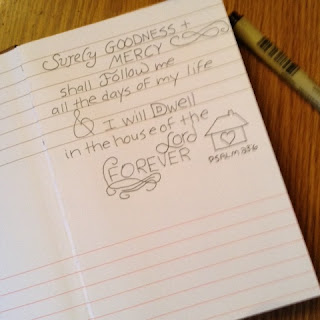 Surely GOODNESS +
MERCY
shall Follow me
all the days of my life
& I will Dwell
in the house of the
Lord
FOREVER
PSALM 23:6